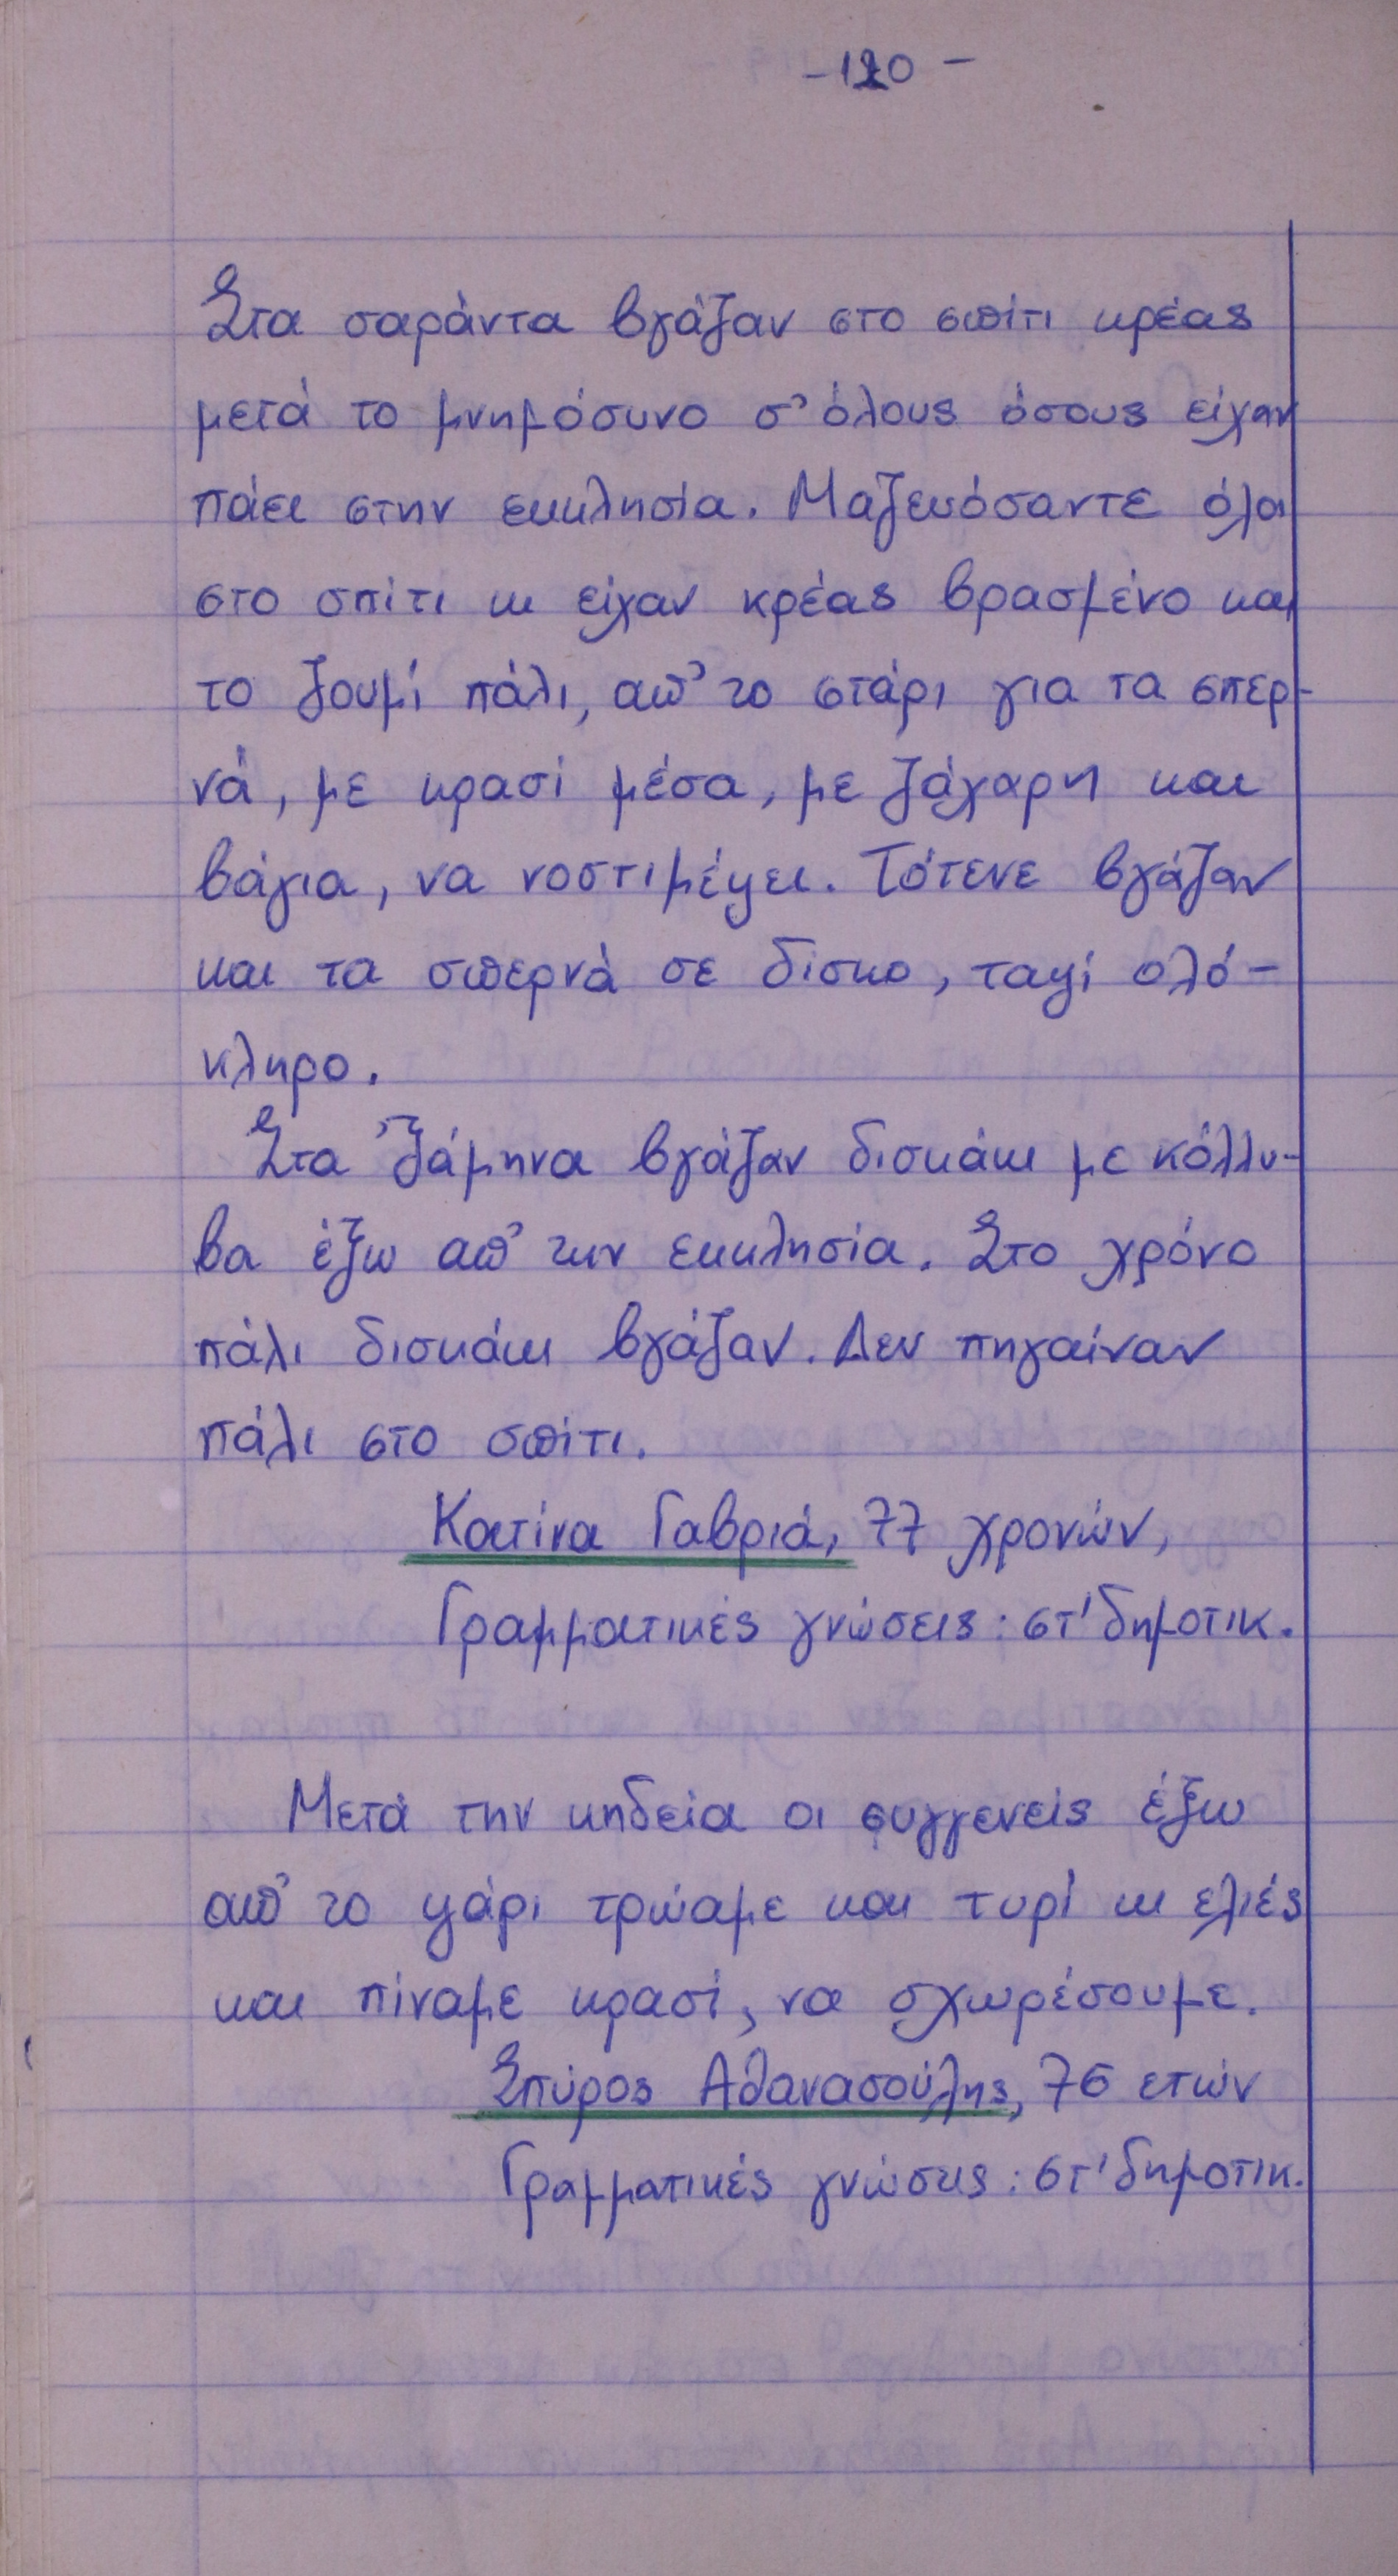 -120-
Στα σαράντα βγάζαν στο σπίτι κρέας
μετά το μνημόσυνο σ' όλους όσους είχαν
πάει στην εκκλησία. Μαζευόσαντε όλοι
στο σπίτι κι είχαν κρέας βρασμένο και
το ζουμί πάλι, απ' το στάρι για τα σπερ-
νά, με κρασί μέσα, με ζάχαρη και
βάγια, να νοστιμέψει. Τότενε βγάζαν
και τα σπερνά σε δίσκο, ταψί ολό-
κληρο.
Στα 'ξάμηνα βγάζαν δισκάκι με κόλλυ-
βα έξω απ' την εκκλησία. Στο χρόνο
πάλι δισκάκι βγάζαν. Δεν πηγαίναν
πάλι στο σπίτι.
Κατίνα Γαβριά, 77 χρονών,
Γραμματικές γνώσεις: στ' δημοτικ.
Μετά την κηδεία οι συγγενείς έξω
απ' το ψάρι τρώαμε και τυρί κι ελιές
και πίναμε κρασί, να σχωρέσουμε.
Σπύρος Αθανασούλης, 76 ετών
Γραμματικές γνώσεις: στ' δημοτικ.